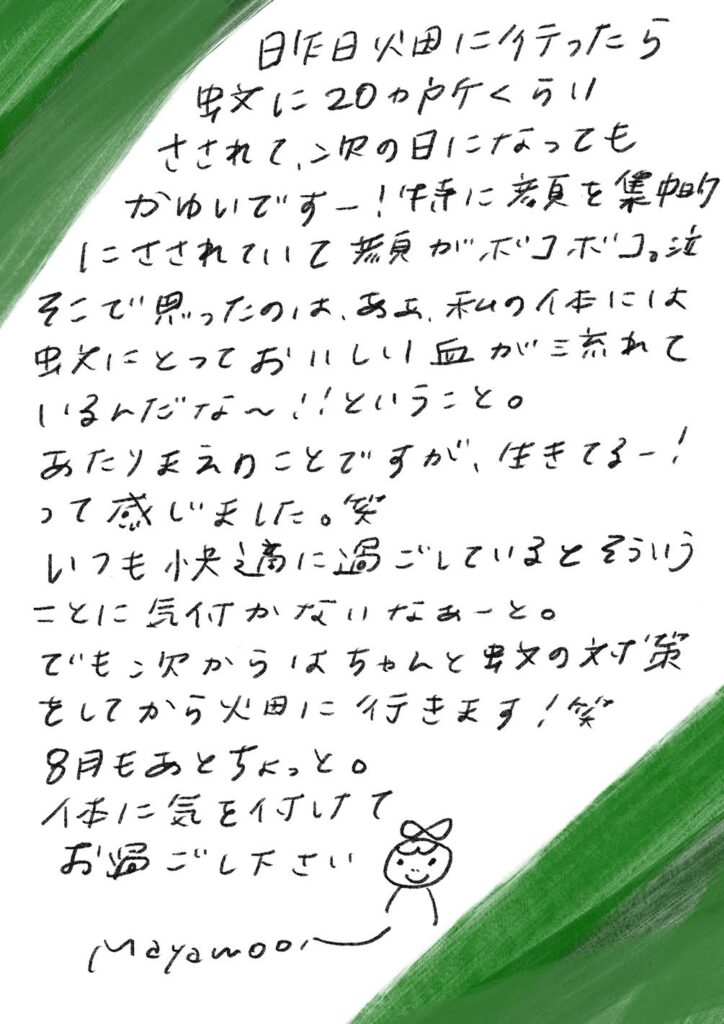 昨日畑に行ったら
蚊に20カ所くらい
さされて、次の日になっても
かゆいですー!特に顔を集中的
にさされていて顔がボコボコ。泣
そこで思ったのは、あぁ、私の体には
蚊にとっておいしい血が流れて
いるんだな〜!!ということ。
あたりまえのことですが、生きてるー!
って感じました。笑
いつも快適に過ごしているとそういう
ことに気付かないなぁーと。
でも次からはちゃんと蚊の対策
をしてから畑に行きます!笑
8月もあとちょっと。
体に気を付けて
お過ごし下さい
Mayamoon